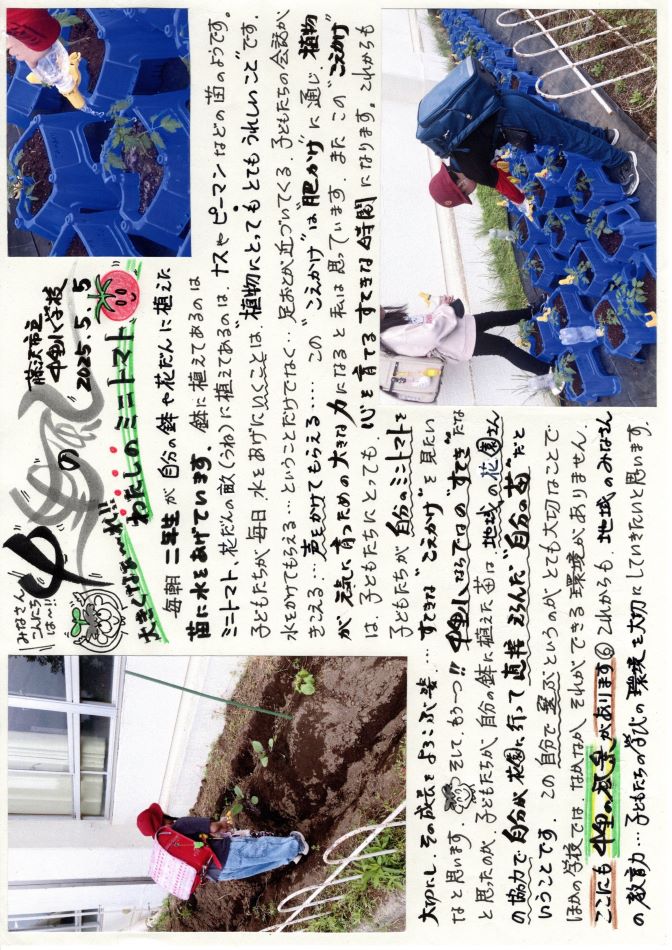 みなさん
こんにち
は〜!!
中里
の
藤沢市立
中里小学校
2025.5.5
大きくなぁ〜れ!!!
わたしのミニトマト
毎朝 二年生が自分の鉢や花だんに植えた
苗に水をあげています。鉢に植えてあるのは
ミニトマト、花だんの畝(うね)に植えてあるのは、ナスやピーマンなどの苗のようです。
子どもたちが毎日、水をあげにいくことは、"植物にとってもとてもうれしいこと"です。
水をかけてもらえる…ということだけでなく…足おとが近づいてくる、子どもたちの会話が
きこえる…声をかけてもらえる…。この"こえかけ"は"肥かけ"に通じ、植物
が元気に育つための大きな力になると私は思っています。またこの"こえかけ"
は、子どもたちにとっても、心を育てるすてきな時間になります。これからも
子どもたちが自分のミニトマトを
大切にし、その成長をよろこぶ姿…すてきな"こえかけ"を見たい
なと思います。そして、もう一つ!! 中里小ならではの"すてき"だな
と思ったのが、子どもたちが自分の鉢に植えた苗は、地域の花園さん
の協力で自分が花園に行って直接えらんだ"自分の苗"だと
いうことです。この自分で選ぶというのがとても大切なことで
ほかの学校では、なかなかそれができる環境がありません。
ここにも中里のがあります これからも、地域のみなさん
の教育力…子どもたちの学びの環境を大切にしていきたいと思います。